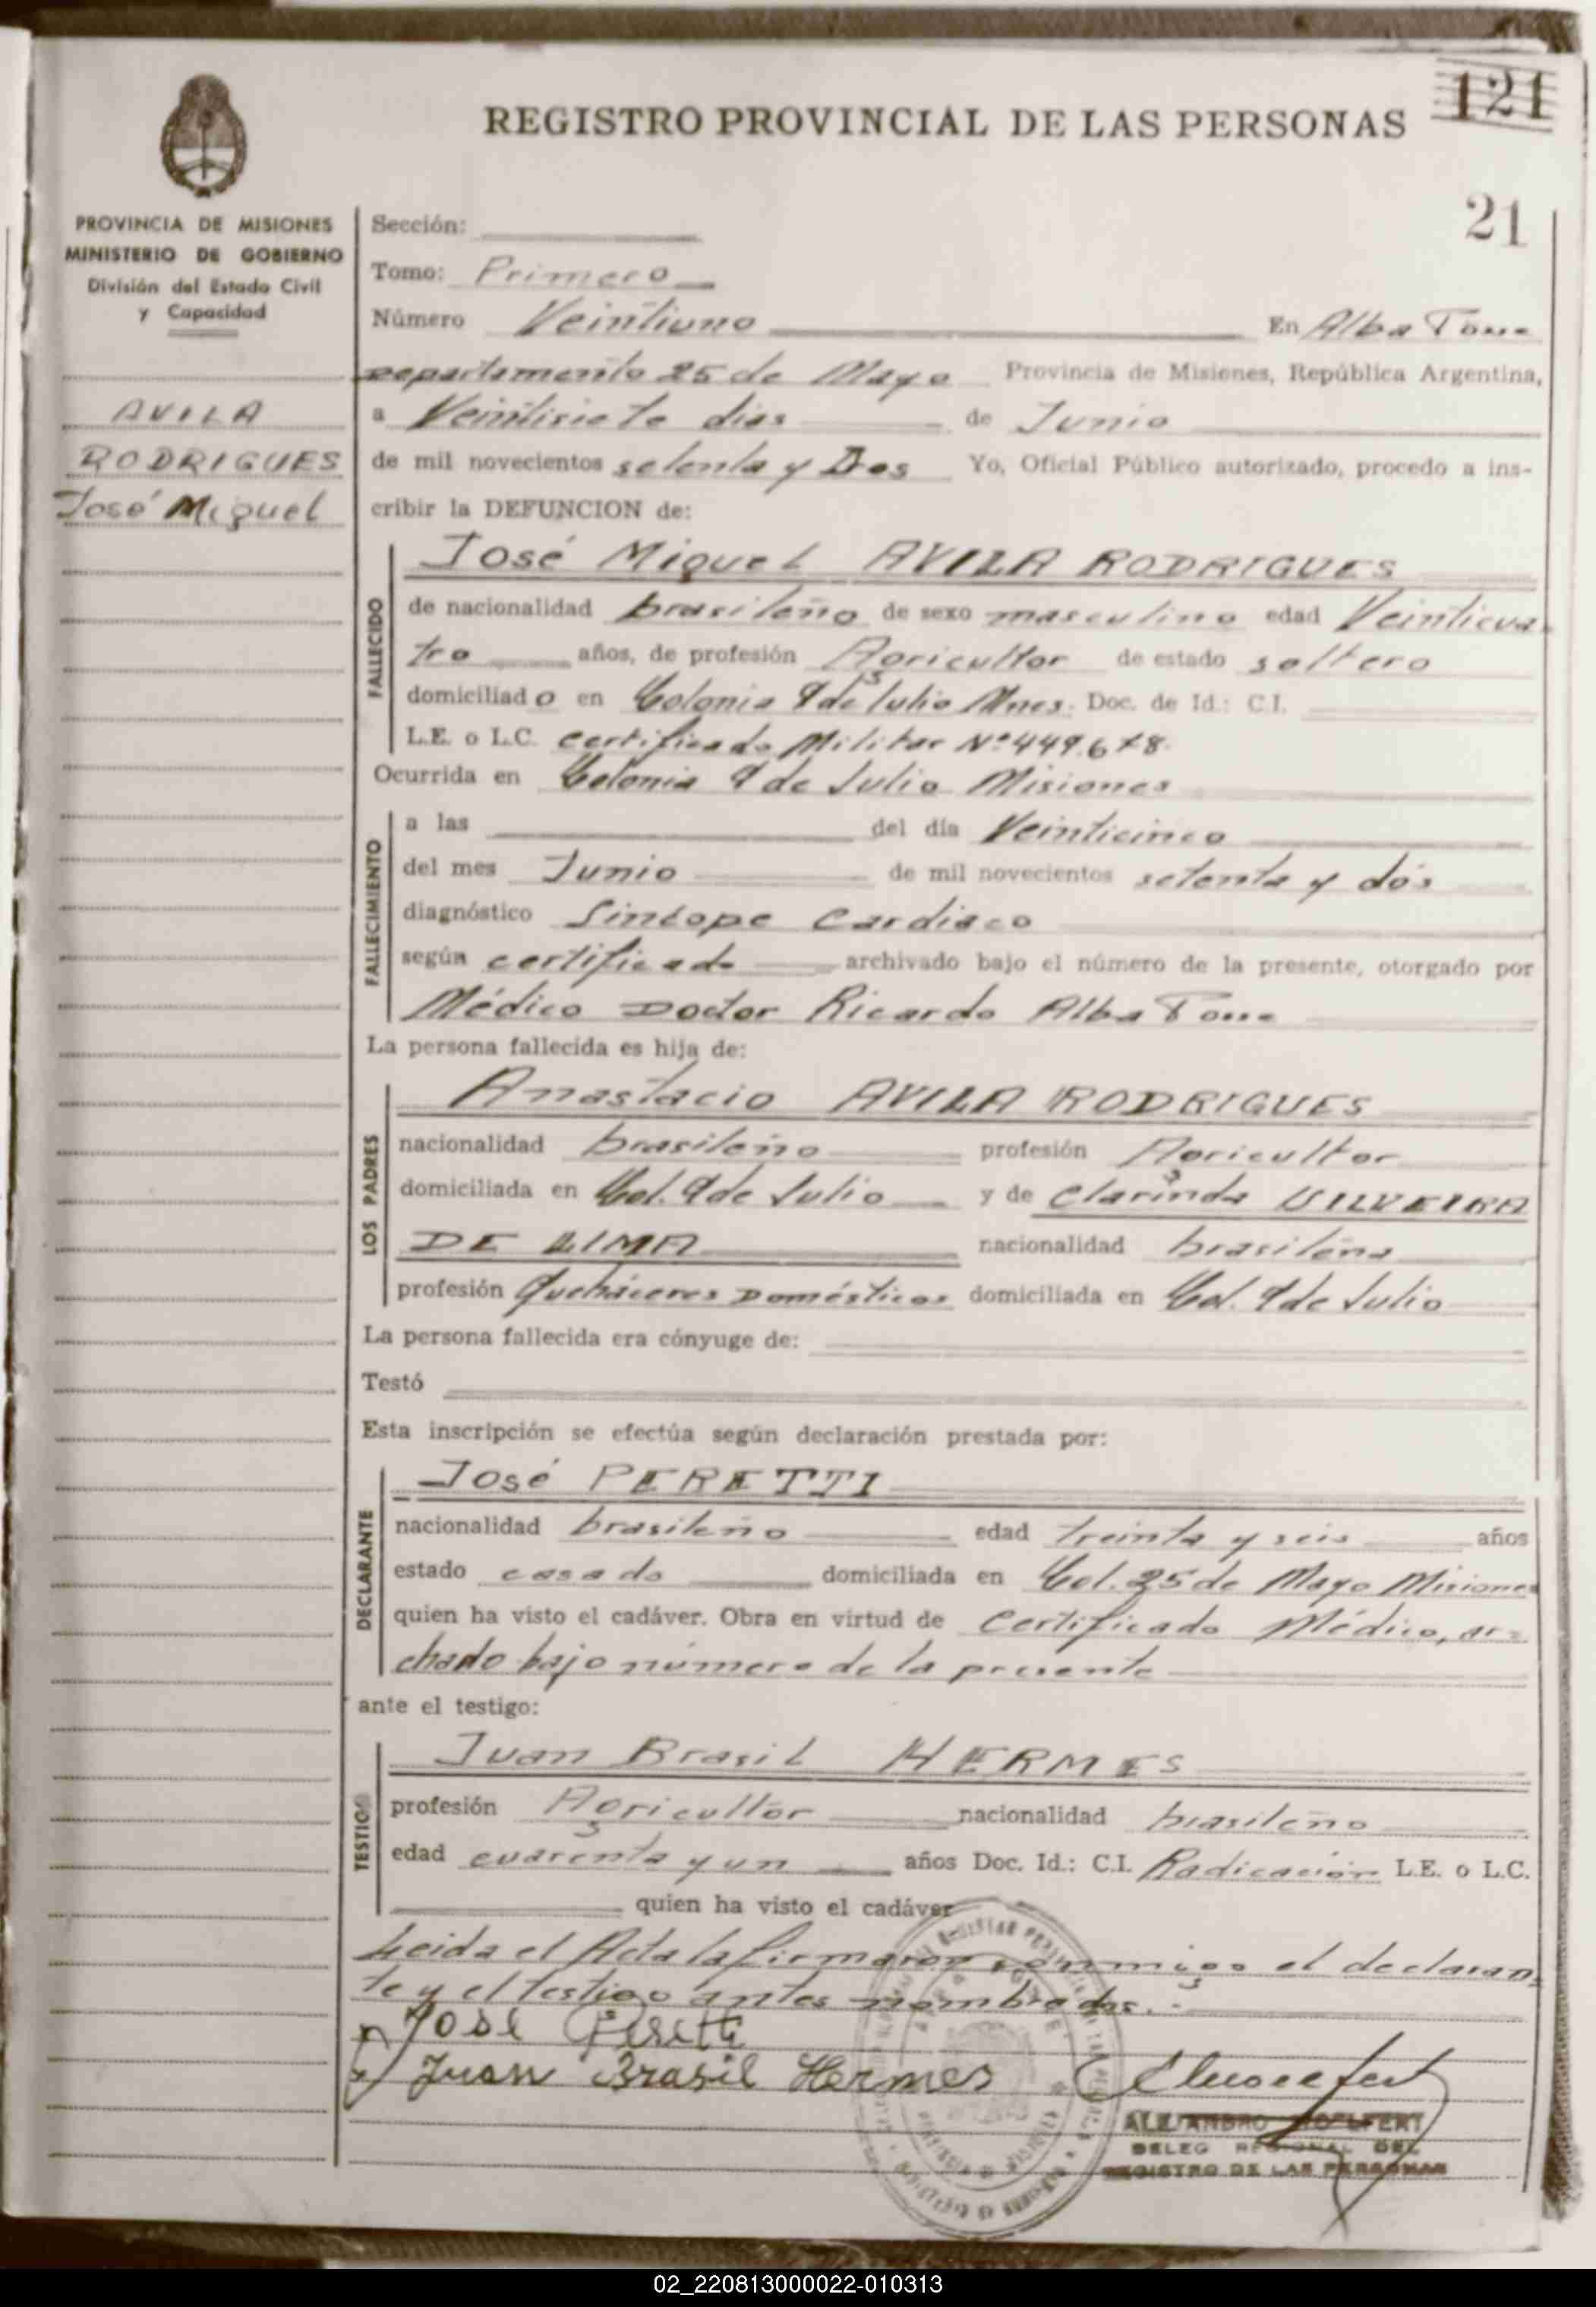 121
REGISTRO PROVINCIAL DE LAS PERSONAS
21
PROVINCIA DE MISIONES
MINISTERIO DE GOBIERNO
División del Estado Civil
y Capacidad
AVILA
RODRIGUES
José Miguel
Sección:
Tomo: Primero
Número Veintiuno En Alba Posse
Departamento 25 de Mayo Provincia de Misiones, República Argentina,
a Veintisiete dias de Junio
de mil novecientos setenta y Dos Yo, Oficial Público autorizado, procedo a ins-
cribir la DEFUNCION de:
FALLECIDO
José Miguel AVILA RODRIGUES
de nacionalidad brasileño de sexo masculino edad Veinticua-
tro años, de profesión Agricultor de estado soltero
domiciliado en Colonia 9 de Julio Mnes. Doc. de Id.: C.I.
L.E. o L.C. certificado Militar Nº 449.678.
Ocurrida en Colonia 9 de Julio Misiones
FALLECIMIENTO
a las del día Veinticinco
del mes Junio de mil novecientos setenta y dós
diagnóstico Sincope Cardiaco
según certificado archivado bajo el número de la presente, otorgado por
Médico Doctor Ricardo Alba Posse
La persona fallecida es hija de:
LOS PADRES
Anastacio AVILA RODRIGUES
nacionalidad brasileño profesión Agricultor
domiciliada en Col. 9 de Julio y de Clarinda
DE LIMA nacionalidad brasileña
profesión Queháceres Domésticos domiciliada en Col. 9 de Julio
La persona fallecida era cónyuge de:
Testó
Esta inscripción se efectúa según declaración prestada por:
DECLARANTE
José PERETTI
nacionalidad brasileño edad treinta y seis años
estado casado domiciliada en Col. 25 de Mayo Misiones
quien ha visto el cadáver. Obra en virtud de Certificado Médico, ar=
chado bajo número de la presente
ante el testigo:
TESTIGO
Juan Brasil HERMES
profesión Agricultor nacionalidad brasileño
edad cuarenta y un años Doc. Id.: C.I. Radicación L.E. o L.C.
quien ha visto el cadáver
Leida el Acta la firmaron conmigo el declaran-
te y el testigo antes nombrados.-
José Peretti
Juan Brasil Hermes
ALEJANDRO
DELEG REGIONAL DEL
REGISTRO DE LAS PERSONAS
02_220813000022-010313